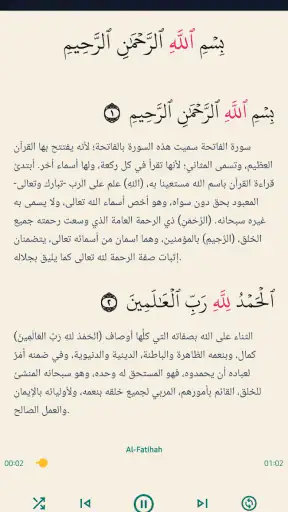 بِسْمِ اللَّهِ الرَّحْمَٰنِ الرَّحِيمِ
بِسْمِ اللَّهِ الرَّحْمَٰنِ الرَّحِيمِ ١
سورة الفاتحة سميت هذه السورة بالفاتحة؛ لأنه يفتتح بها القرآن
العظيم، وتسمى المثاني؛ لأنها تقرأ في كل ركعة، ولها أسماء أخر. أبتدئ
قراءة القرآن باسم الله مستعينا به، (اللهِ) علم على الرب -تبارك وتعالى-
المعبود بحق دون سواه، وهو أخص أسماء الله تعالى، ولا يسمى به
غيره سبحانه. (الرَّحْمَنِ) ذي الرحمة العامة الذي وسعت رحمته جميع
الخلق، (الرَّحِيمِ) بالمؤمنين، وهما اسمان من أسمائه تعالى، يتضمنان
إثبات صفة الرحمة لله تعالى كما يليق بجلاله.
الْحَمْدُ لِلَّهِ رَبِّ الْعَالَمِينَ ٢
(الحَمْدُ للهِ رَبِّ العَالَمِينَ) الثناء على الله بصفاته التي كلُّها أوصاف
كمال، وبنعمه الظاهرة والباطنة، الدينية والدنيوية، وفي ضمنه أمْرٌ
لعباده أن يحمدوه، فهو المستحق له وحده، وهو سبحانه المنشئ
للخلق، القائم بأمورهم، المربي لجميع خلقه بنعمه، ولأوليائه بالإيمان
والعمل الصالح.
Al-Fatihah
00:02 01:02